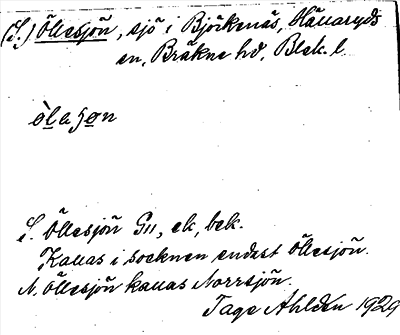 (S.) Öllesjön, sjö i Björkenäs, Hällaryds
sn, Bräkne hd, Blek. l.
òlaʃon
S. Öllesjön GII, ek, bek.
Kallas i socknen endast Öllesjön.
N. Öllesjön kallas Norrsjön.
Tage Ahldén 1929